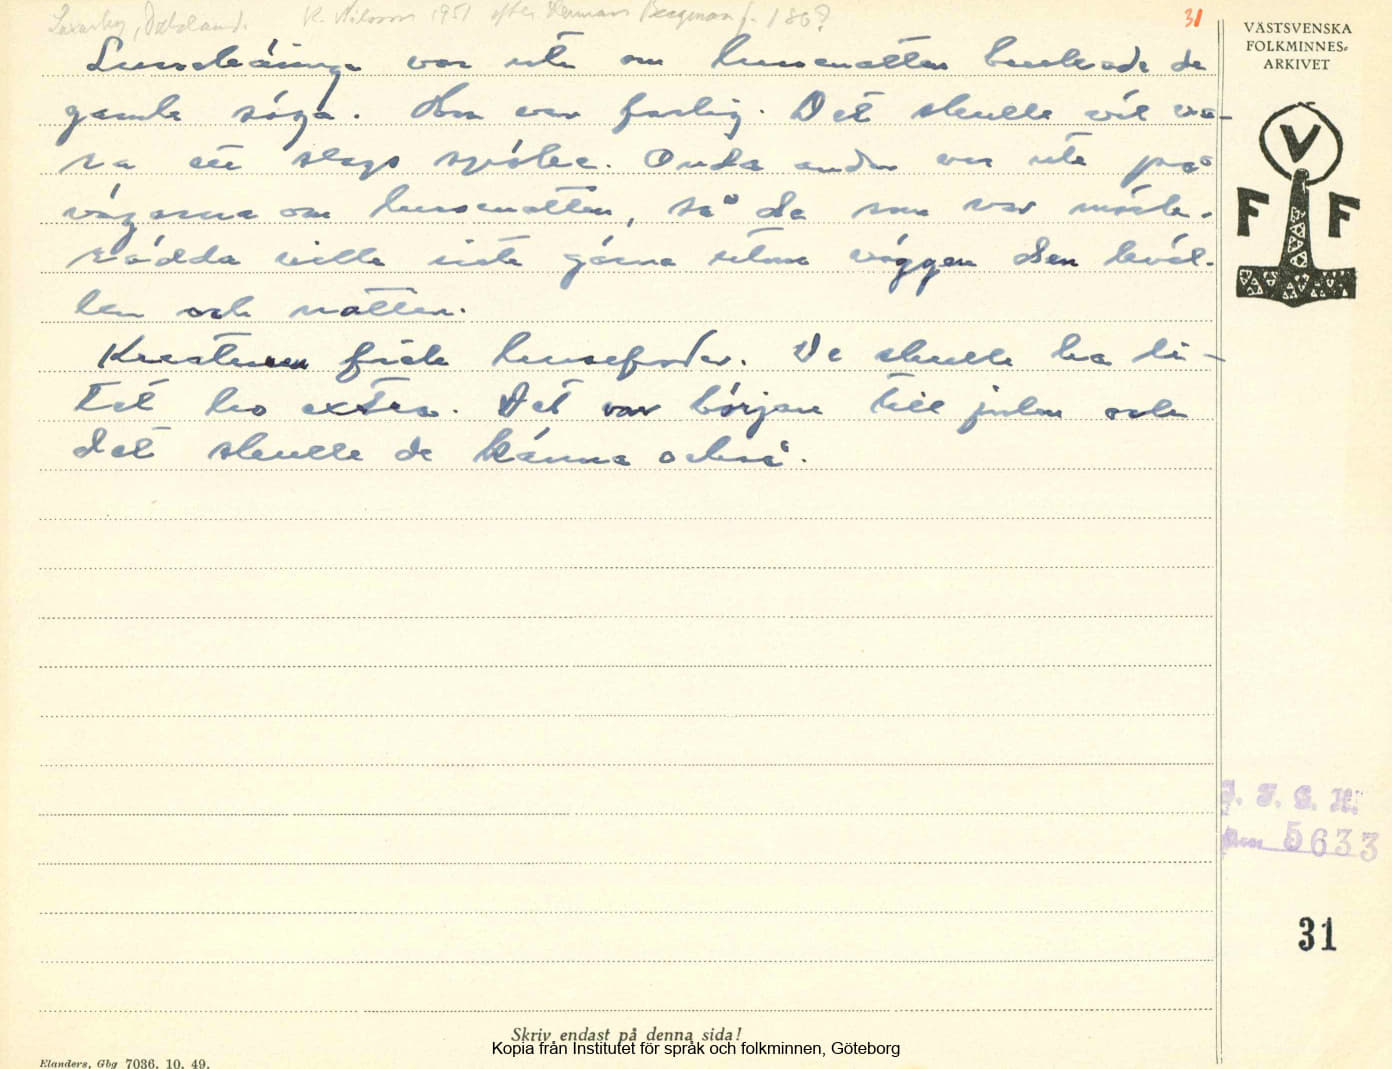 Laxarby, Dalsland. K. Nilsson 1951 efter Herman Bergman f. 1867
31
Lussekäringa var ute om lussenatten brukade de
gamle säga. Hon var farlig. Det skulle väl va-
ra ett slags spöke. Onda andar var ute på
vägarna om lussenatten, så de som var mörk-
rädda ville inte gärna utom väggen den kväl-
len och natten.
Kreaturen fick lussefoder. De skulle ha li-
tet hö extra. Det var början till julen och
det skulle de känna också.
VÄSTSVENSKA
FOLKMINNES-
ARKIVET
V
F F
I. F. G. H.
5633
31
Skriv endast på denna sida!
Kopia från Institutet för språk och folkminnen, Göteborg
Elanders, Gbg 7036. 10. 49.